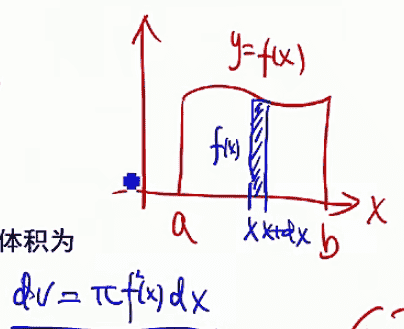 y=f(x)
f(x)
a x x+dx b x
体积为
dv=πf²(x)dx